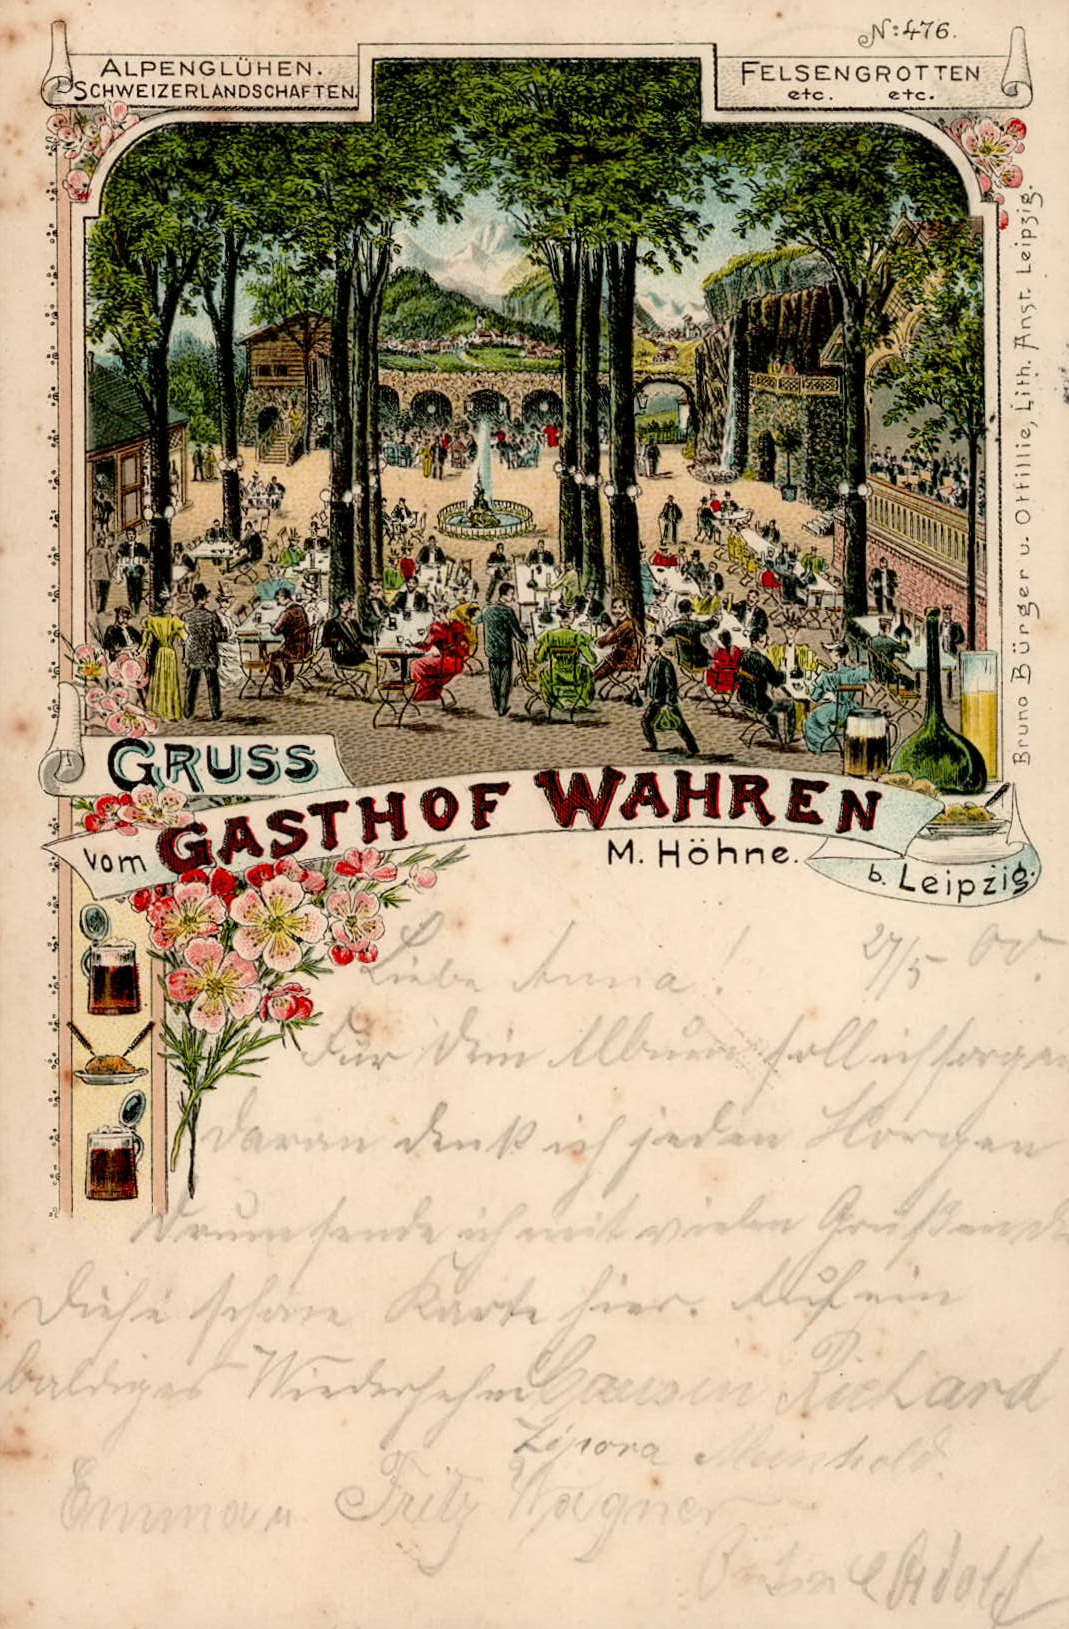 No: 476.
ALPENGLÜHEN.
SCHWEIZERLANDSCHAFTEN.
FELSENGROTTEN
etc. etc.
Bruno Bürger u. Ottillie, Lith. Anst. Leipzig.
GRUSS
vom GASTHOF WAHREN
M. Höhne.
b. Leipzig.
27/5 00.
Liebe Anna!
Für Dein Album soll ich sorgen
daran denk ich jeden Morgen
Drum sende ich mit vielen Grüßen
Diese schöne Karte hier. Auf ein
baldiges Wiedersehen Cousin Richard
Meinhold.
Emma u. Fritz Wagner
Adolf